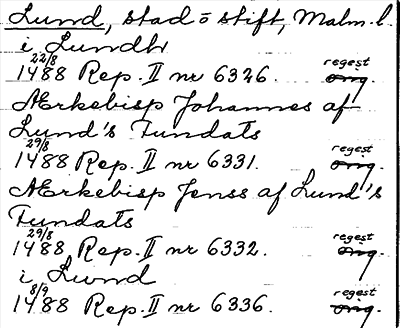 Lund, stad o stift, Malm. l.
i Lundh
22/8 regest
1488 Rep. II nr 6326. orig.
Ærkebisp Johannes af
Lund's Fundats
29/8 regest
1488 Rep. II nr 6331. orig.
Ærkebisp Jenss af Lund's
Fundats
29/8 regest
1488 Rep. II nr 6332. orig.
i Lund
8/9 regest
1488 Rep. II nr 6336. orig.